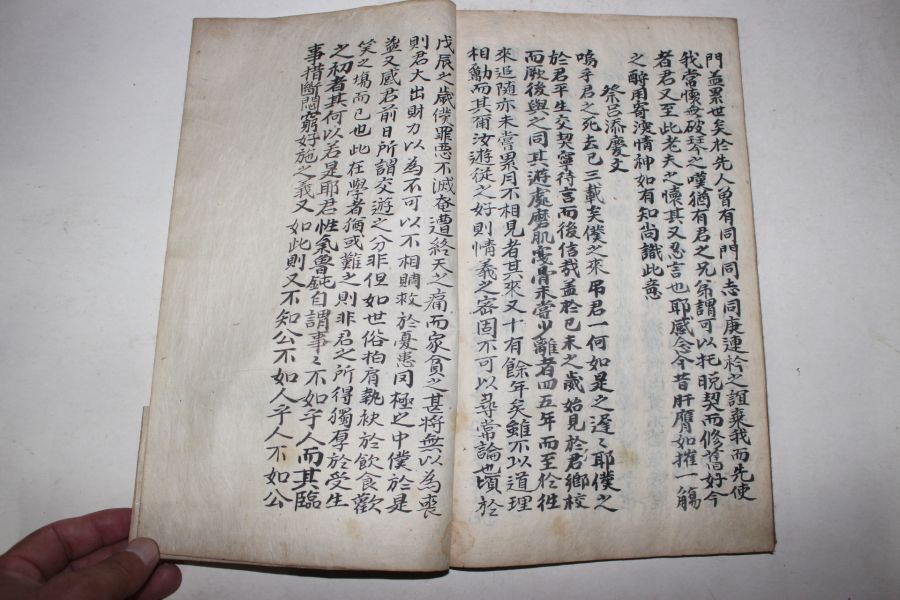 門益累世矣於先人曾有同門同志同庚連衿之誼棄我而先使
我常懷無破琴之嘆猶有君之兄弟謂可以托晩契而修舊好今
者君又至此老夫之懷其又忍言也耶感念今昔肝膺如摧一觴
之酹用寄哀情神如有知尚識此意
祭呂添慶文
嗚乎君之死去已三載矣僕之來吊君一何如是之遲〻耶僕之
於君平生交契寧待言而後信哉益於已未之歲始見於君鄕校
而厥後與之同其遊處磨肌戛骨未嘗少離者四五年而至於徃
來追隨亦未嘗累月不相見者其來又十有餘年矣雖不以道理
相勸而其爾汝遊從之好則情義之密固不可以尋常論也頃於
戊辰之歲僕罪惡不滅奄遭終天之痛而家貧之甚將無以為喪
則君大出財力以為不可以不相賙救於憂患罔極之中僕於是
益又感君前日所謂交遊之分非但如世俗拍肩執袂於飮食歡
笑之塲而已也此在學者猶或難之則非君之所得獨厚於受生
之初者其何以若是耶君性氣魯鈍自謂事〻不如乎人而其臨
事措斷悶窮好施之義又如此則又不知公不如人乎人不如公